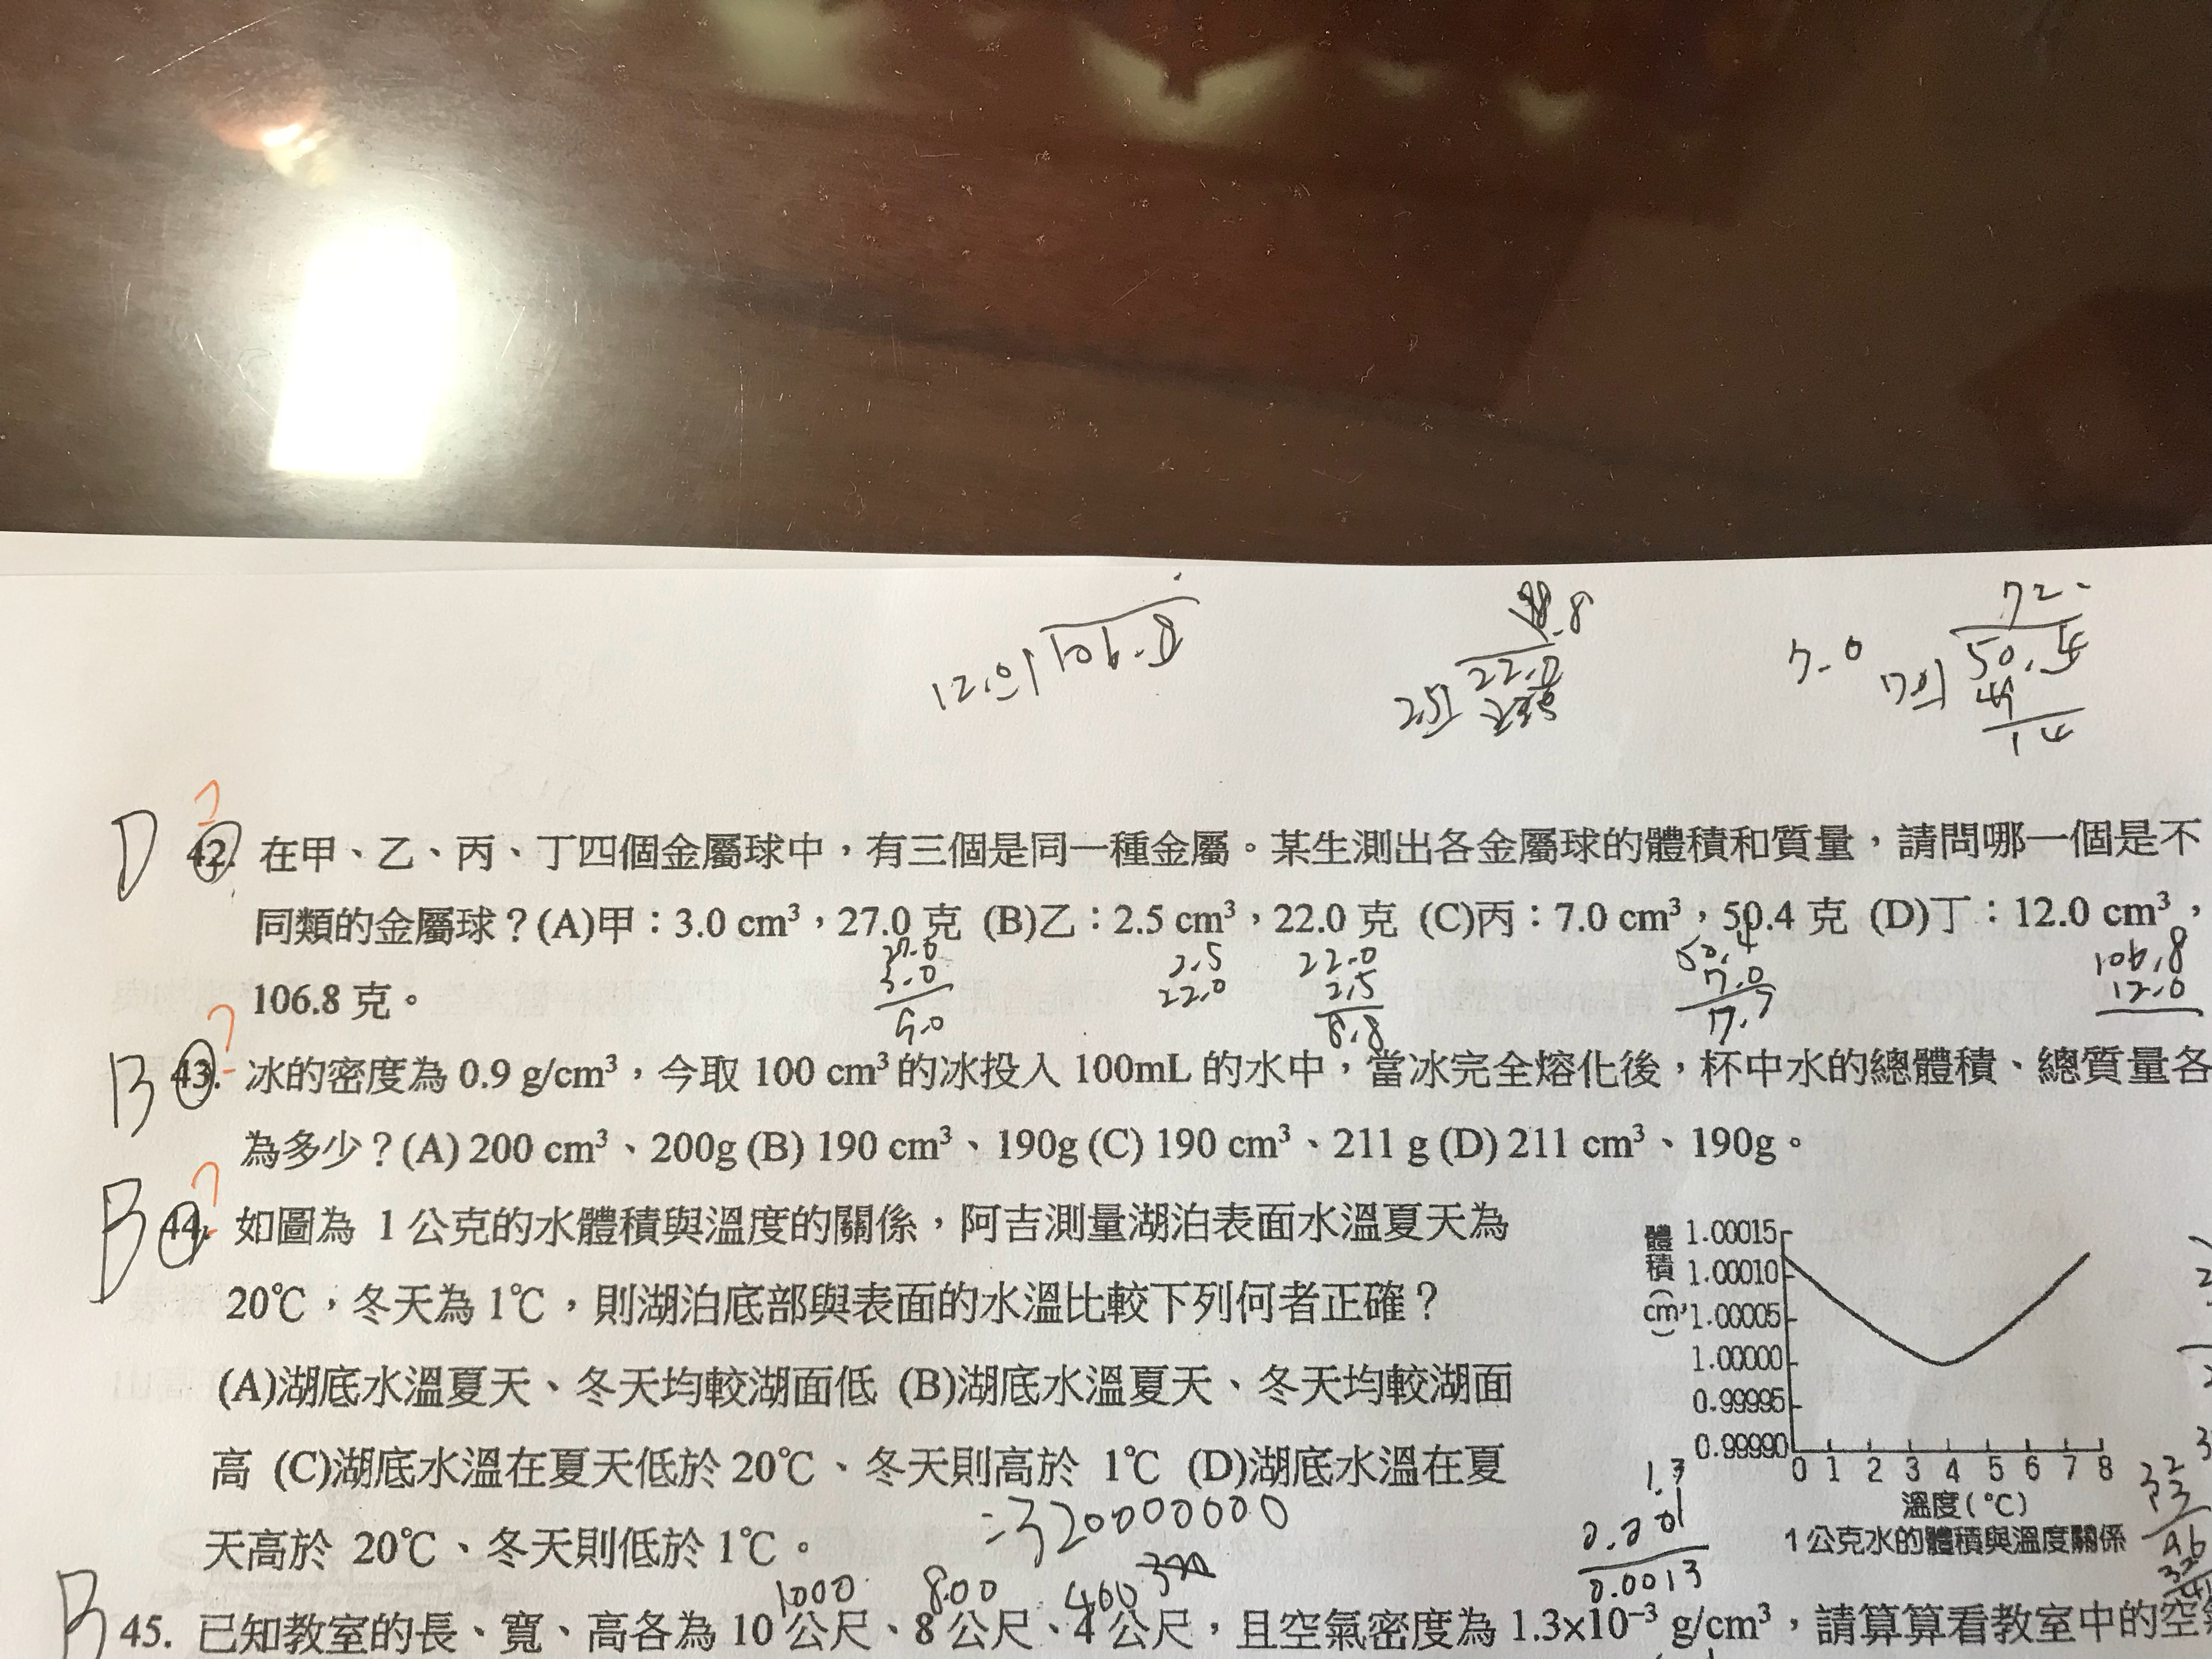 12.0 106.8
88.8
22.0
25
7.0
72
701 50.4
49
14
D ? 42. 在甲、乙、丙、丁四個金屬球中，有三個是同一種金屬。某生測出各金屬球的體積和質量，請問哪一個是不
同類的金屬球？(A)甲：3.0 cm³，27.0 克 (B)乙：2.5 cm³，22.0 克 (C)丙：7.0 cm³，50.4 克 (D)丁：12.0 cm³，
27.0 2.5 22.0 50.4 106.8
3.0 22.0 2.5 7.0 12.0
106.8 克。
9.0 8.8 17.7
B ? 43. 冰的密度為 0.9 g/cm³，今取 100 cm³ 的冰投入 100mL 的水中，當冰完全熔化後，杯中水的總體積、總質量各
為多少？(A) 200 cm³、200g (B) 190 cm³、190g (C) 190 cm³、211 g (D) 211 cm³、190g。
B ? 44. 如圖為 1 公克的水體積與溫度的關係，阿吉測量湖泊表面水溫夏天為
20℃，冬天為 1℃，則湖泊底部與表面的水溫比較下列何者正確？
(A)湖底水溫夏天、冬天均較湖面低 (B)湖底水溫夏天、冬天均較湖面
高 (C)湖底水溫在夏天低於 20℃、冬天則高於 1℃ (D)湖底水溫在夏
天高於 20℃、冬天則低於 1℃。
體積(cm³)
1.00015
1.00010
1.00005
1.00000
0.99995
0.99990
0 1 2 3 4 5 6 7 8
溫度(℃)
1 公克水的體積與溫度關係
=320000000
1.3
0.001
0.0013
1000 800 400
B 45. 已知教室的長、寬、高各為 10 公尺、8 公尺、4 公尺，且空氣密度為 1.3×10⁻³ g/cm³，請算算看教室中的空